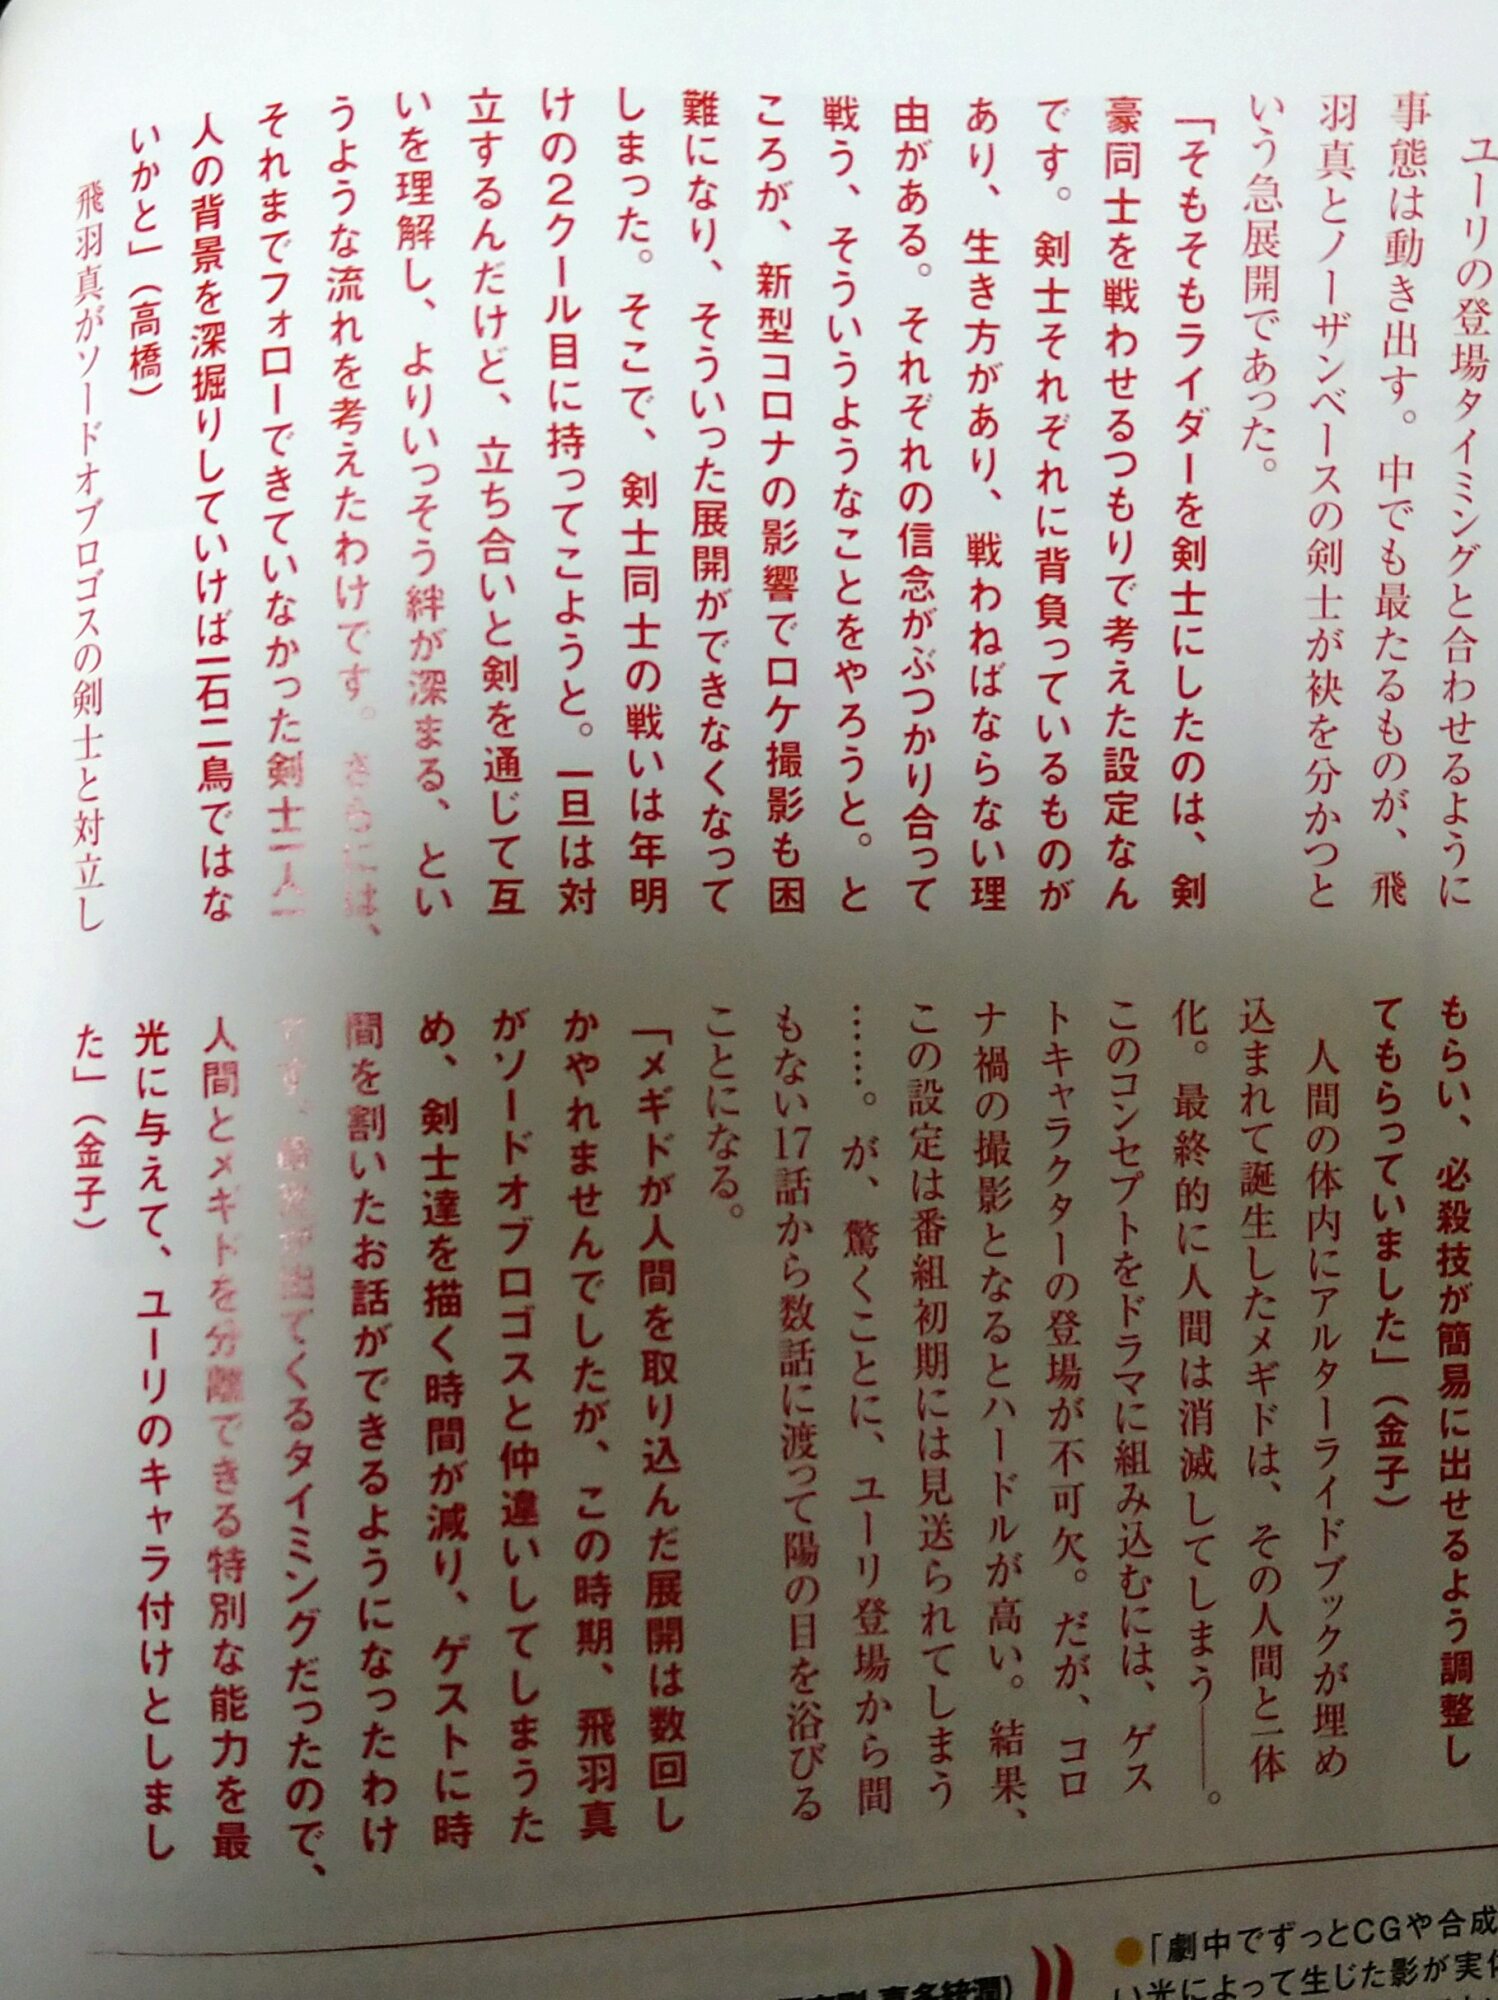 ユーリの登場タイミングと合わせるように
事態は動き出す。中でも最たるものが、飛
羽真とノーザンベースの剣士が袂を分かつと
いう急展開であった。
「そもそもライダーを剣士にしたのは、剣
豪同士を戦わせるつもりで考えた設定なん
です。剣士それぞれに背負っているものが
あり、生き方があり、戦わねばならない理
由がある。それぞれの信念がぶつかり合って
戦う、そういうようなことをやろうと。と
ころが、新型コロナの影響でロケ撮影も困
難になり、そういった展開ができなくなって
しまった。そこで、剣士同士の戦いは年明
けの2クール目に持ってこようと。一旦は対
立するんだけど、立ち合いと剣を通じて互
いを理解し、よりいっそう絆が深まる、とい
うような流れを考えたわけです。さらには、
それまでフォローできていなかった剣士一人一
人の背景を深掘りしていけば一石二鳥ではな
いかと」（高橋）
飛羽真がソードオブロゴスの剣士と対立し
もらい、必殺技が簡易に出せるよう調整し
てもらっていました」（金子）
人間の体内にアルターライドブックが埋め
込まれて誕生したメギドは、その人間と一体
化。最終的に人間は消滅してしまう――。
このコンセプトをドラマに組み込むには、ゲス
トキャラクターの登場が不可欠。だが、コロ
ナ禍の撮影となるとハードルが高い。結果、
この設定は番組初期には見送られてしまう
……。が、驚くことに、ユーリ登場から間
もない17話から数話に渡って陽の目を浴びる
ことになる。
「メギドが人間を取り込んだ展開は数回し
かやれませんでしたが、この時期、飛羽真
がソードオブロゴスと仲違いしてしまうた
め、剣士達を描く時間が減り、ゲストに時
間を割いたお話ができるようになったわけ
です。が出てくるタイミングだったので、
人間とメギドを分離できる特別な能力を最
光に与えて、ユーリのキャラ付けとしまし
た」（金子）
●「劇中でずっとCGや合成
い光によって生じた影が実体
喜多綾潤）